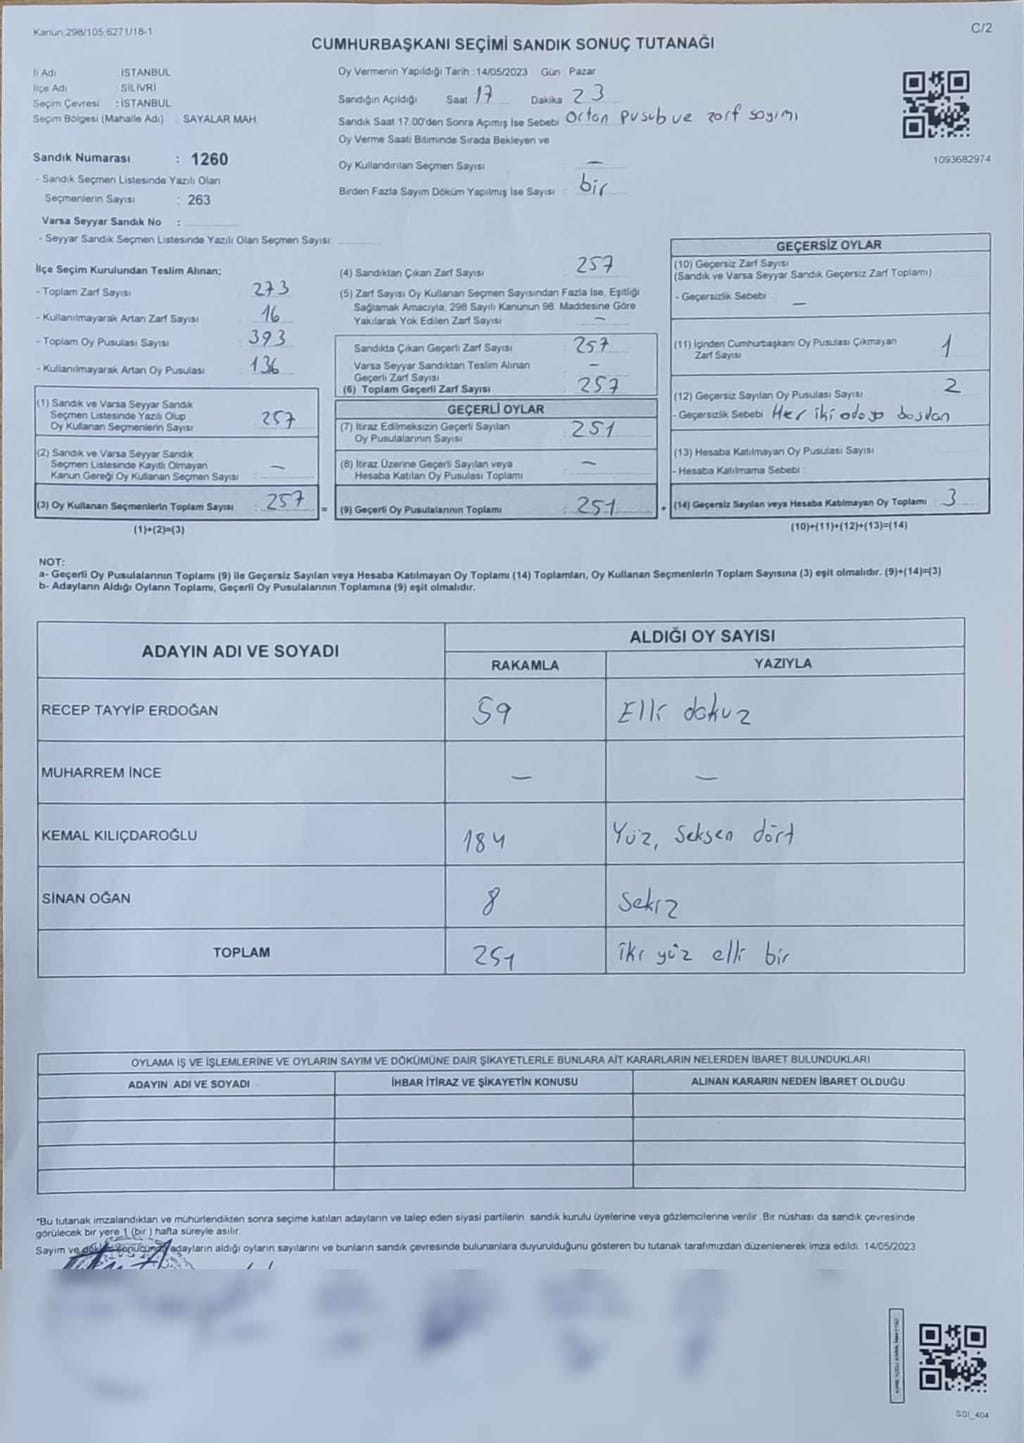 Kanun:298/105,6271/18-1
C/2
CUMHURBAŞKANI SEÇİMİ SANDIK SONUÇ TUTANAĞI
İl Adı : İSTANBUL
İlçe Adı : SİLİVRİ
Seçim Çevresi : İSTANBUL
Seçim Bölgesi (Mahalle Adı) : SAYALAR MAH.
Sandık Numarası : 1260
- Sandık Seçmen Listesinde Yazılı Olan
Seçmenlerin Sayısı : 263
Varsa Seyyar Sandık No :
- Seyyar Sandık Seçmen Listesinde Yazılı Olan Seçmen Sayısı:
Oy Vermenin Yapıldığı Tarih :14/05/2023 Gün : Pazar
Sandığın Açıldığı Saat 17 Dakika 23
Sandık Saat 17.00'den Sonra Açımış İse Sebebi Ortan pusub ve zarf sayımı
Oy Verme Saati Bitiminde Sırada Bekleyen ve
Oy Kullandırılan Seçmen Sayısı : —
Birden Fazla Sayım Döküm Yapılmış İse Sayısı : bir
1093682974
İlçe Seçim Kurulundan Teslim Alınan;
- Toplam Zarf Sayısı : 273
- Kullanılmayarak Artan Zarf Sayısı : 16
- Toplam Oy Pusulası Sayısı : 393
- Kullanılmayarak Artan Oy Pusulası : 136
(1) Sandık ve Varsa Seyyar Sandık
Seçmen Listesinde Yazılı Olup
Oy Kullanan Seçmenlerin Sayısı : 257
(2) Sandık ve Varsa Seyyar Sandık
Seçmen Listesinde Kayıtlı Olmayan
Kanun Gereği Oy Kullanan Seçmen Sayısı —
(3) Oy Kullanan Seçmenlerin Toplam Sayısı : 257
(1)+(2)=(3)
(4) Sandıktan Çıkan Zarf Sayısı : 257
(5) Zarf Sayısı Oy Kullanan Seçmen Sayısından Fazla İse, Eşitliği
Sağlamak Amacıyla, 298 Sayılı Kanunun 98. Maddesine Göre
Yakılarak Yok Edilen Zarf Sayısı : —
Sandıkta Çıkan Geçerli Zarf Sayısı : 257
Varsa Seyyar Sandıktan Teslim Alınan
Geçerli Zarf Sayısı : —
(6) Toplam Geçerli Zarf Sayısı : 257
GEÇERLİ OYLAR
(7) İtiraz Edilmeksizin Geçerli Sayılan
Oy Pusulalarının Sayısı : 251
(8) İtiraz Üzerine Geçerli Sayılan veya
Hesaba Katılan Oy Pusulası Toplamı : —
= (9) Geçerli Oy Pusulalarının Toplamı : 251
GEÇERSİZ OYLAR
(10) Geçersiz Zarf Sayısı
(Sandık ve Varsa Seyyar Sandık Geçersiz Zarf Toplamı)
- Geçersizlik Sebebi : —
(11) İçinden Cumhurbaşkanı Oy Pusulası Çıkmayan
Zarf Sayısı 1
(12) Geçersiz Sayılan Oy Pusulası Sayısı 2
- Geçersizlik Sebebi Her iki adaya basılan
(13) Hesaba Katılmayan Oy Pusulası Sayısı
- Hesaba Katılmama Sebebi :
+ (14) Geçersiz Sayılan veya Hesaba Katılmayan Oy Toplamı : 3
(10)+(11)+(12)+(13)=(14)
NOT:
a- Geçerli Oy Pusulalarının Toplamı (9) ile Geçersiz Sayılan veya Hesaba Katılmayan Oy Toplamı (14) Toplamları, Oy Kullanan Seçmenlerin Toplam Sayısına (3) eşit olmalıdır. (9)+(14)=(3)
b- Adayların Aldığı Oyların Toplamı, Geçerli Oy Pusulalarının Toplamına (9) eşit olmalıdır.
ADAYIN ADI VE SOYADI
ALDIĞI OY SAYISI
RAKAMLA YAZIYLA
RECEP TAYYİP ERDOĞAN 59 Elli dokuz
MUHARREM İNCE — —
KEMAL KILIÇDAROĞLU 184 Yüz, Seksen dört
SİNAN OĞAN 8 Sekiz
TOPLAM 251 iki yüz elli bir
OYLAMA İŞ VE İŞLEMLERİNE VE OYLARIN SAYIM VE DÖKÜMÜNE DAİR ŞİKAYETLERLE BUNLARA AİT KARARLARIN NELERDEN İBARET BULUNDUKLARI
ADAYIN ADI VE SOYADI İHBAR İTİRAZ VE ŞİKAYETİN KONUSU ALINAN KARARIN NEDEN İBARET OLDUĞU
*Bu tutanak imzalandıktan ve mühürlendikten sonra seçime katılan adayların ve talep eden siyasi partilerin sandık kurulu üyelerine veya gözlemcilerine verilir. Bir nüshası da sandık çevresinde
görülecek bir yere 1 (bir) hafta süreyle asılır.
Sayım ve döküm sonucunda adayların aldığı oyların sayılarını ve bunların sandık çevresinde bulunanlara duyurulduğunu gösteren bu tutanak tarafımızdan düzenlenerek imza edildi. 14/05/2023
SSI_404